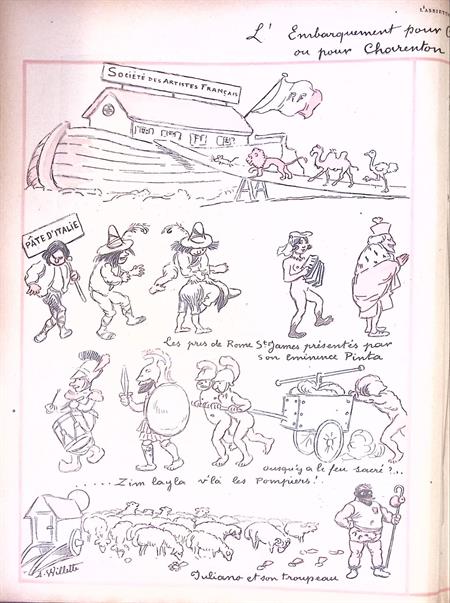 L'ASSIETTE
L' Embarquement pour C
ou pour Charenton
SOCIÉTÉ DES ARTISTES FRANÇAIS
RF
PÂTE D'ITALIE
Les prix de Rome St James présentés par
son éminence Pinta
ousqu'y a le feu sacré ?...
..... Zim layla v'là les Pompiers !
Juliano et son troupeau
A. Willette